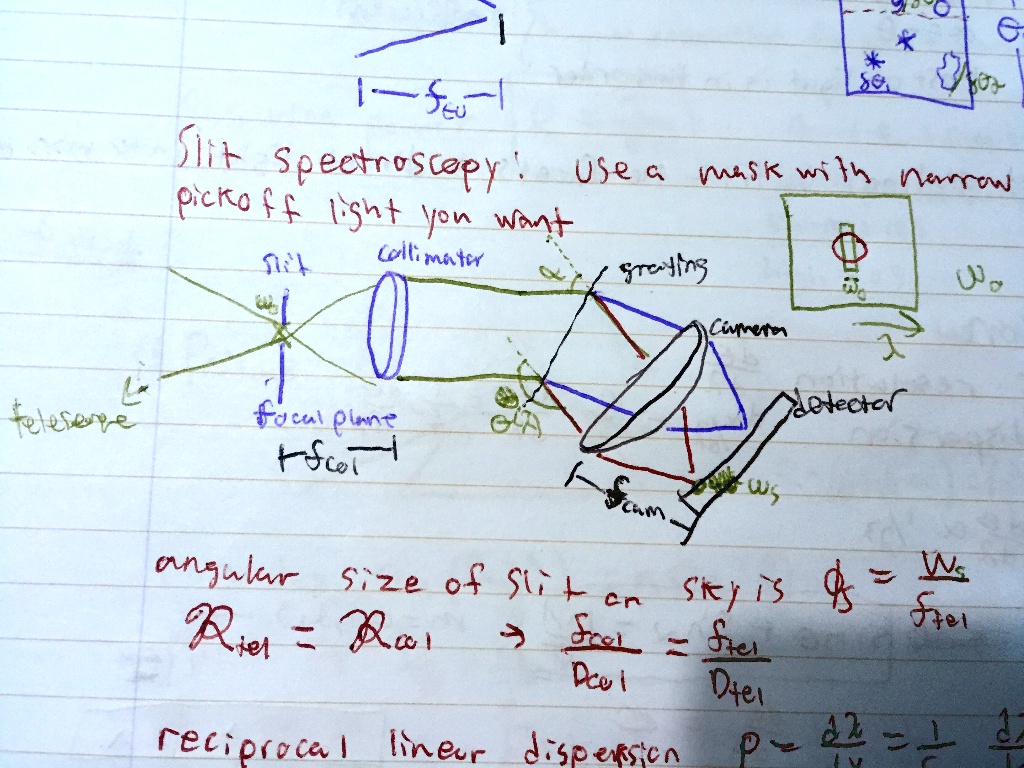 f
δθ₁
δθ₂
θ
Slit spectroscopy: Use a mask with narrow
pickoff light you want
slit
collimator
α
grating
w₀
camera
w₀
w₀
λ
detector
telescope
focal plane
θ(λ)
f_col
f_cam
w_s
angular size of slit on sky is ϕ_s = w_s / f_tel
R_tel = R_col → f_col / D_col = f_tel / D_tel
reciprocal linear dispersion P =